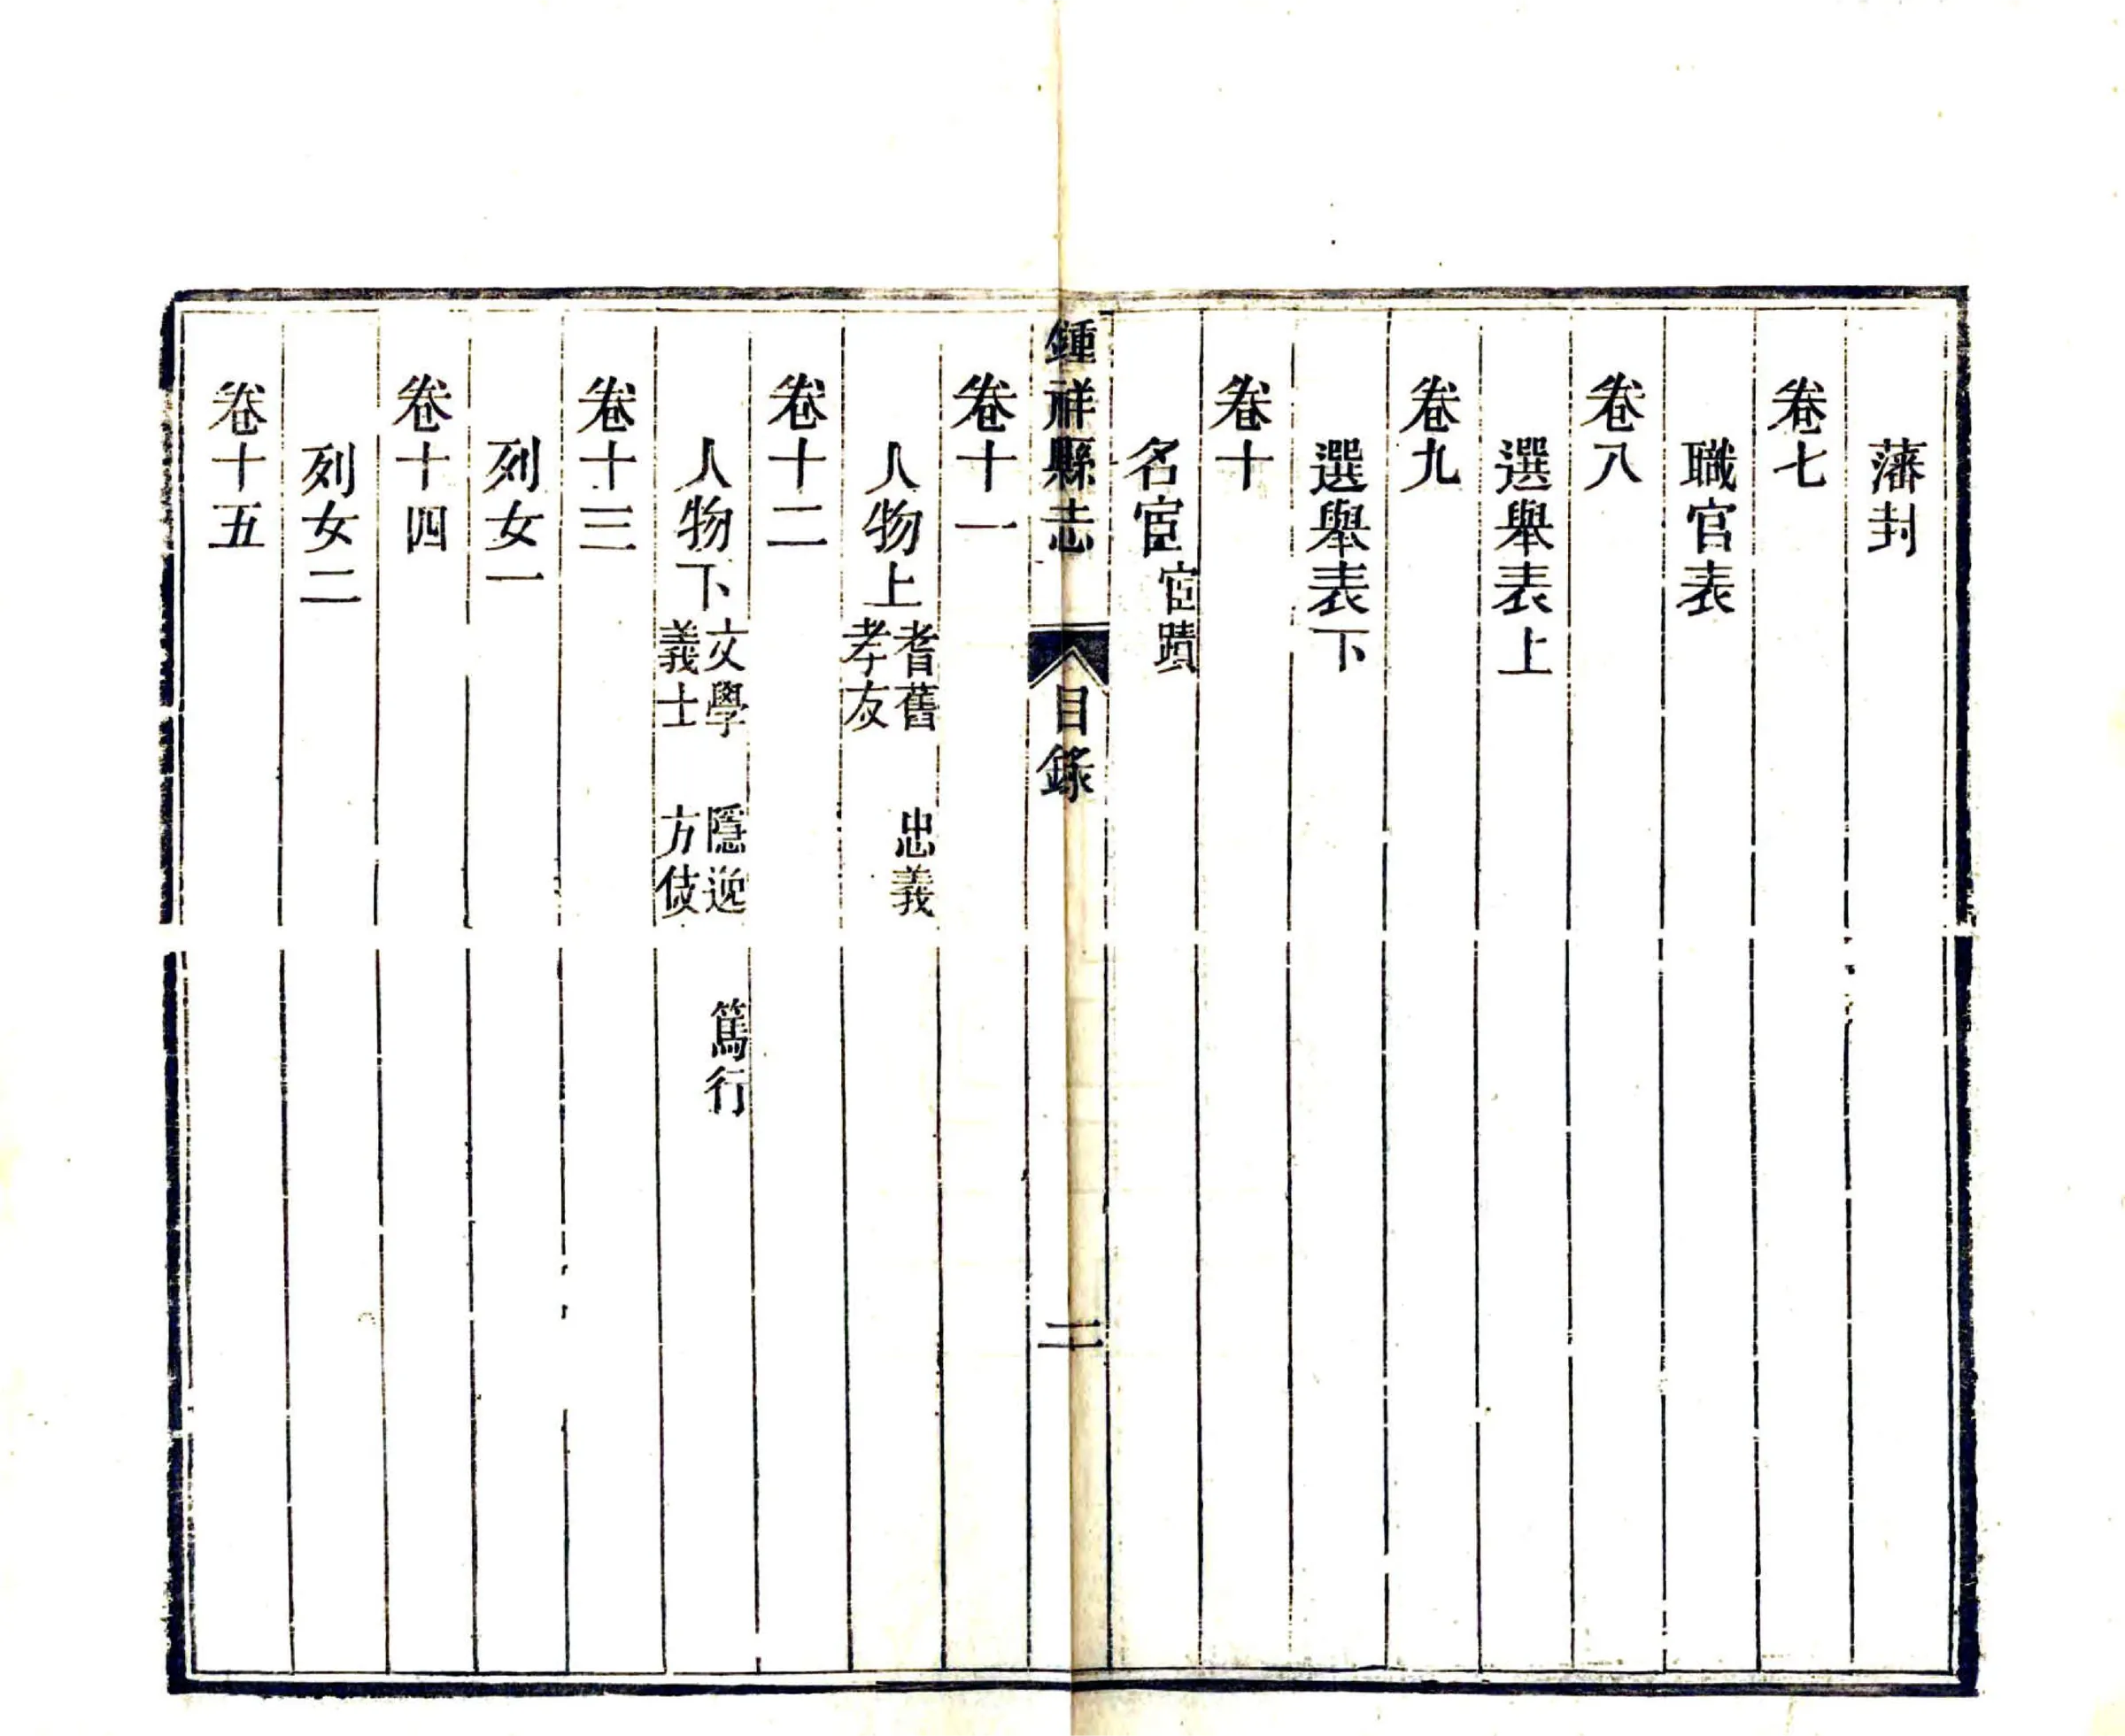 藩封
卷七
職官表
卷八
選舉表上
卷九
選舉表下
卷十
名宦宦蹟
鍾祥縣志 目錄 二
卷十一
人物上耆舊 忠義
孝友
卷十二
人物下文學 隱逸 篤行
義士 方伎
卷十三
列女一
卷十四
列女二
卷十五